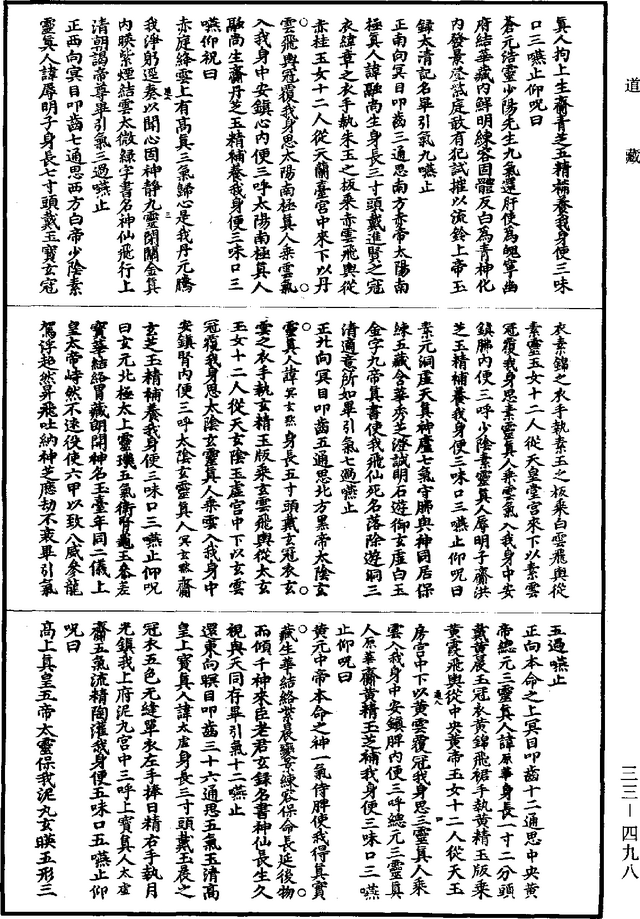 道藏
真人拘上生齋青芝玉精補養我身便三味
口三嚥止仰呪曰
蒼元浩靈少陽先生九氣還肝使爲魄寧幽
府結華藏內鮮明練容固體反白爲青神化
內發景登紫庭敢有犯試摧以流鈴上帝玉
錄太清記名畢引氣九嚥止
正南向冥目叩齒三通思南方赤帝太陽南
極真人諱融尚生身長三寸頭戴進賢之冠
衣緯章之衣手執朱玉之板乘赤雲飛輿從
赤桂玉女十二人從天蘭臺宮中來下以丹
雲飛輿冠覆我身思太陽南極真人乘雲氣
入我身中安鎮心內便三呼太陽南極真人
融尚生齋丹芝玉精補養我身便三味口三
嚥仰祝曰
赤庭絳雲上有高真三氣歸心是我丹元騰
我淨躬遥奏以聞心固神静九靈閉關金真
內映紫煙結雲太微綠字書名神仙飛行上
清朝謁帝尊畢引氣三過嚥止
正西向冥目叩齒七通思西方白帝少陰素
靈真人諱辱明子身長七寸頭戴玉寶玄冠
衣素錦之衣手執素玉之板乘白雲飛輿從
素靈玉女十二人從天皇堂宮來下以素雲
冠覆我身思素靈真人乘雲氣入我身中安
鎮肺內便三呼少陰素靈真人辱明子齋洪
芝玉精補養我身便三味口三嚥止仰呪曰
素元洞虛天真神廬七氣守肺與神同居保
練五藏含華秀芝澄誠明石遊御玄虛白玉
金字九帝真書使我飛仙死名落除遊洞三
清適意所如畢引氣七過嚥止
正北向冥目叩齒五通思北方黑帝太陰玄
靈真人諱冥玄煞身長五寸頭戴玄冠衣玄
雲之衣手執玄精玉版乘玄雲飛輿從太玄
玉女十二人從天玄陰玉虛宮中下以玄雲
冠覆我身思太陰玄靈真人乘雲入我身中
安鎮腎內便三呼太陰玄靈真人冥玄煞齋
玄芝玉精補養我身便三味口三嚥止仰呪
曰玄元北極太上靈璣五氣衛腎龜玉參差
寶華結絡胃藏朗開神名玉臺年同二儀上
皇太帝峙然不遠役使六甲以致八威參龍
駕浮超然昇飛吐納神芝應劫不衰畢引氣
五過嚥止
正向本命之上冥目叩齒十二通思中央黃
帝總元三靈真人諱原華身長一寸二分頭
戴黃晨玉冠衣黃錦飛裙手執黃精玉版乘
黃霞飛輿從中央黃帝玉女十二人從天玉
房宮中下以黃雲覆冠我身思三靈真人乘
雲入我身中安鎮脾內便三呼總元三靈真
人原華齋黃精玉芝補我身便三味口三嚥
止仰呪曰
黃元中帝本命之神一氣侍脾使我得真寶
藏生華結絡紫晨變景練容保命長延後物
而傾千神來臣老君玄錄名書神仙長生久
視與天同存畢引氣十二嚥止
還東向瞑目叩齒三十六通思五氣玉清高
皇上寶真人諱太虛身長三寸頭戴玉晨之
冠衣五色无縫單衣左手捧日精右手執月
光鎮我上府泥丸宮中三呼上寶真人太虛
齋五氣流精陶灌我身便五味口五嚥止仰
呪曰
高上真皇五帝太靈保我泥丸玄暎五形三
三三—四九八